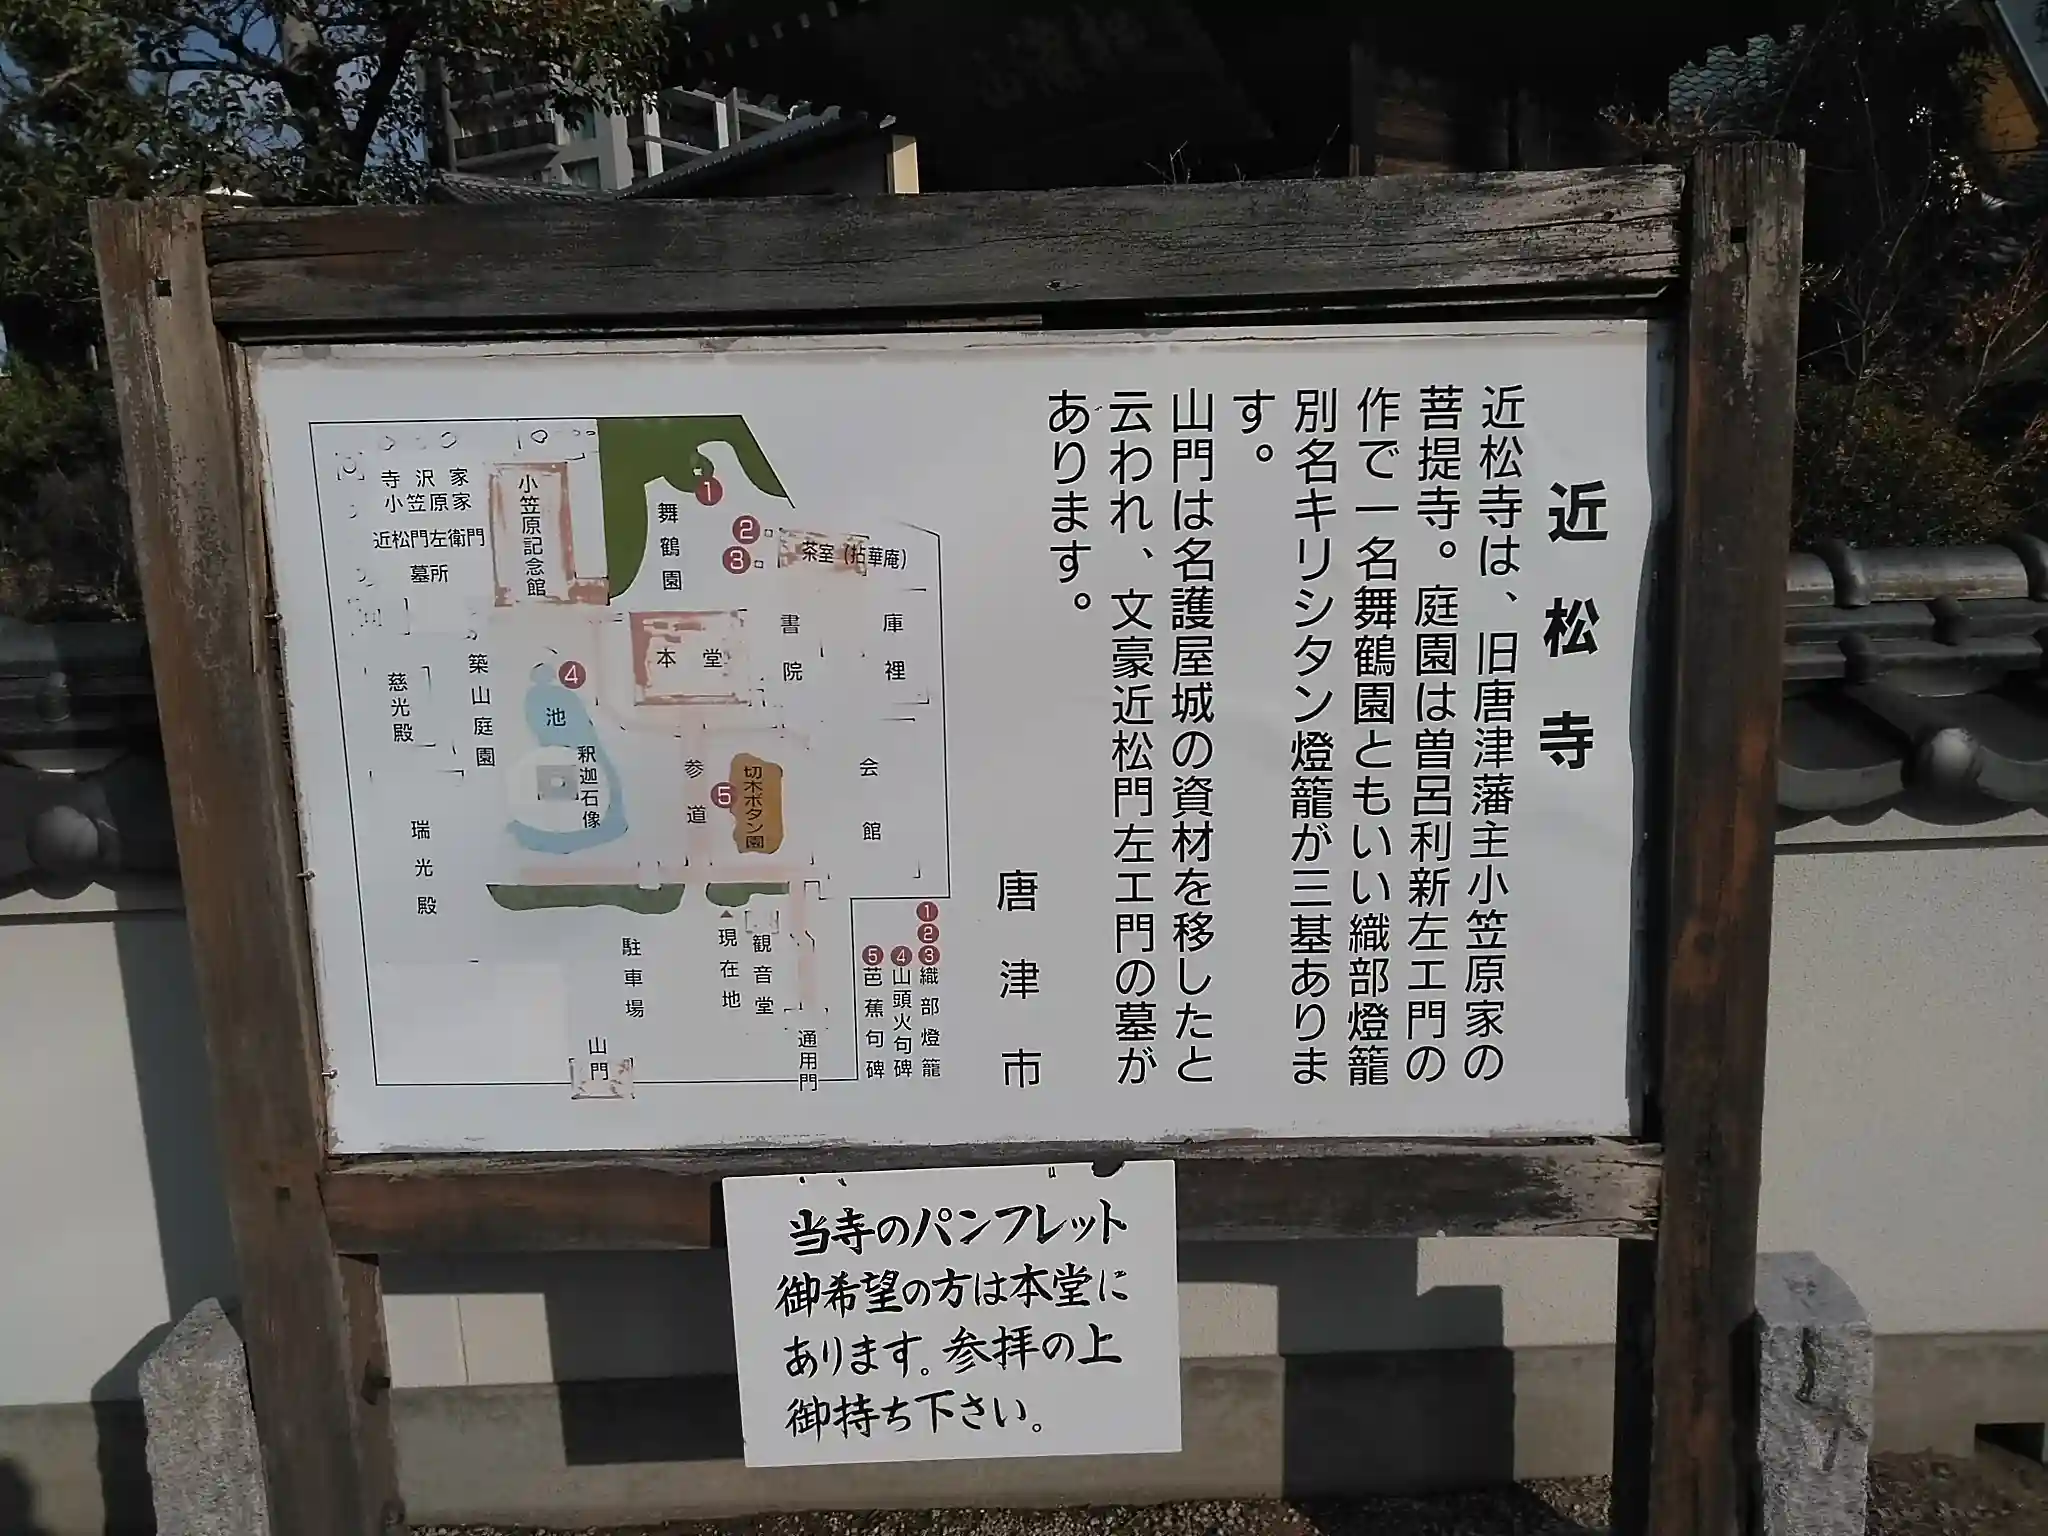 近松寺
近松寺は、旧唐津藩主小笠原家の
菩提寺。庭園は曽呂利新左エ門の
作で一名舞鶴園ともいい織部燈籠
別名キリシタン燈籠が三基ありま
す。
山門は名護屋城の資材を移したと
云われ、文豪近松門左エ門の墓が
あります。
唐津市
寺沢家
小笠原家
近松門左衛門
墓所
小笠原記念館
舞鶴園
1
2
3
茶室(拈華庵)
本堂
書院
庫裡
慈光殿
築山庭園
4
池
釈迦石像
参道
5
切木ボタン園
会館
瑞光殿
駐車場
現在地
観音堂
山門
通用門
1
2
3織部燈籠
4山頭火句碑
5芭蕉句碑
当寺のパンフレット
御希望の方は本堂に
あります。参拝の上
御持ち下さい。